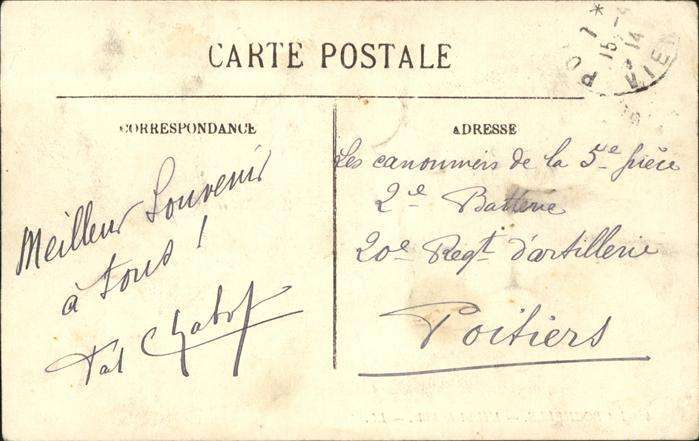 CARTE POSTALE
CORRESPONDANCE
ADRESSE
Meilleur Souvenir
à Tous !
Chabot
Les canonniers de la 5e pièce
2e Batterie
20e Regt. d'artillerie
Poitiers